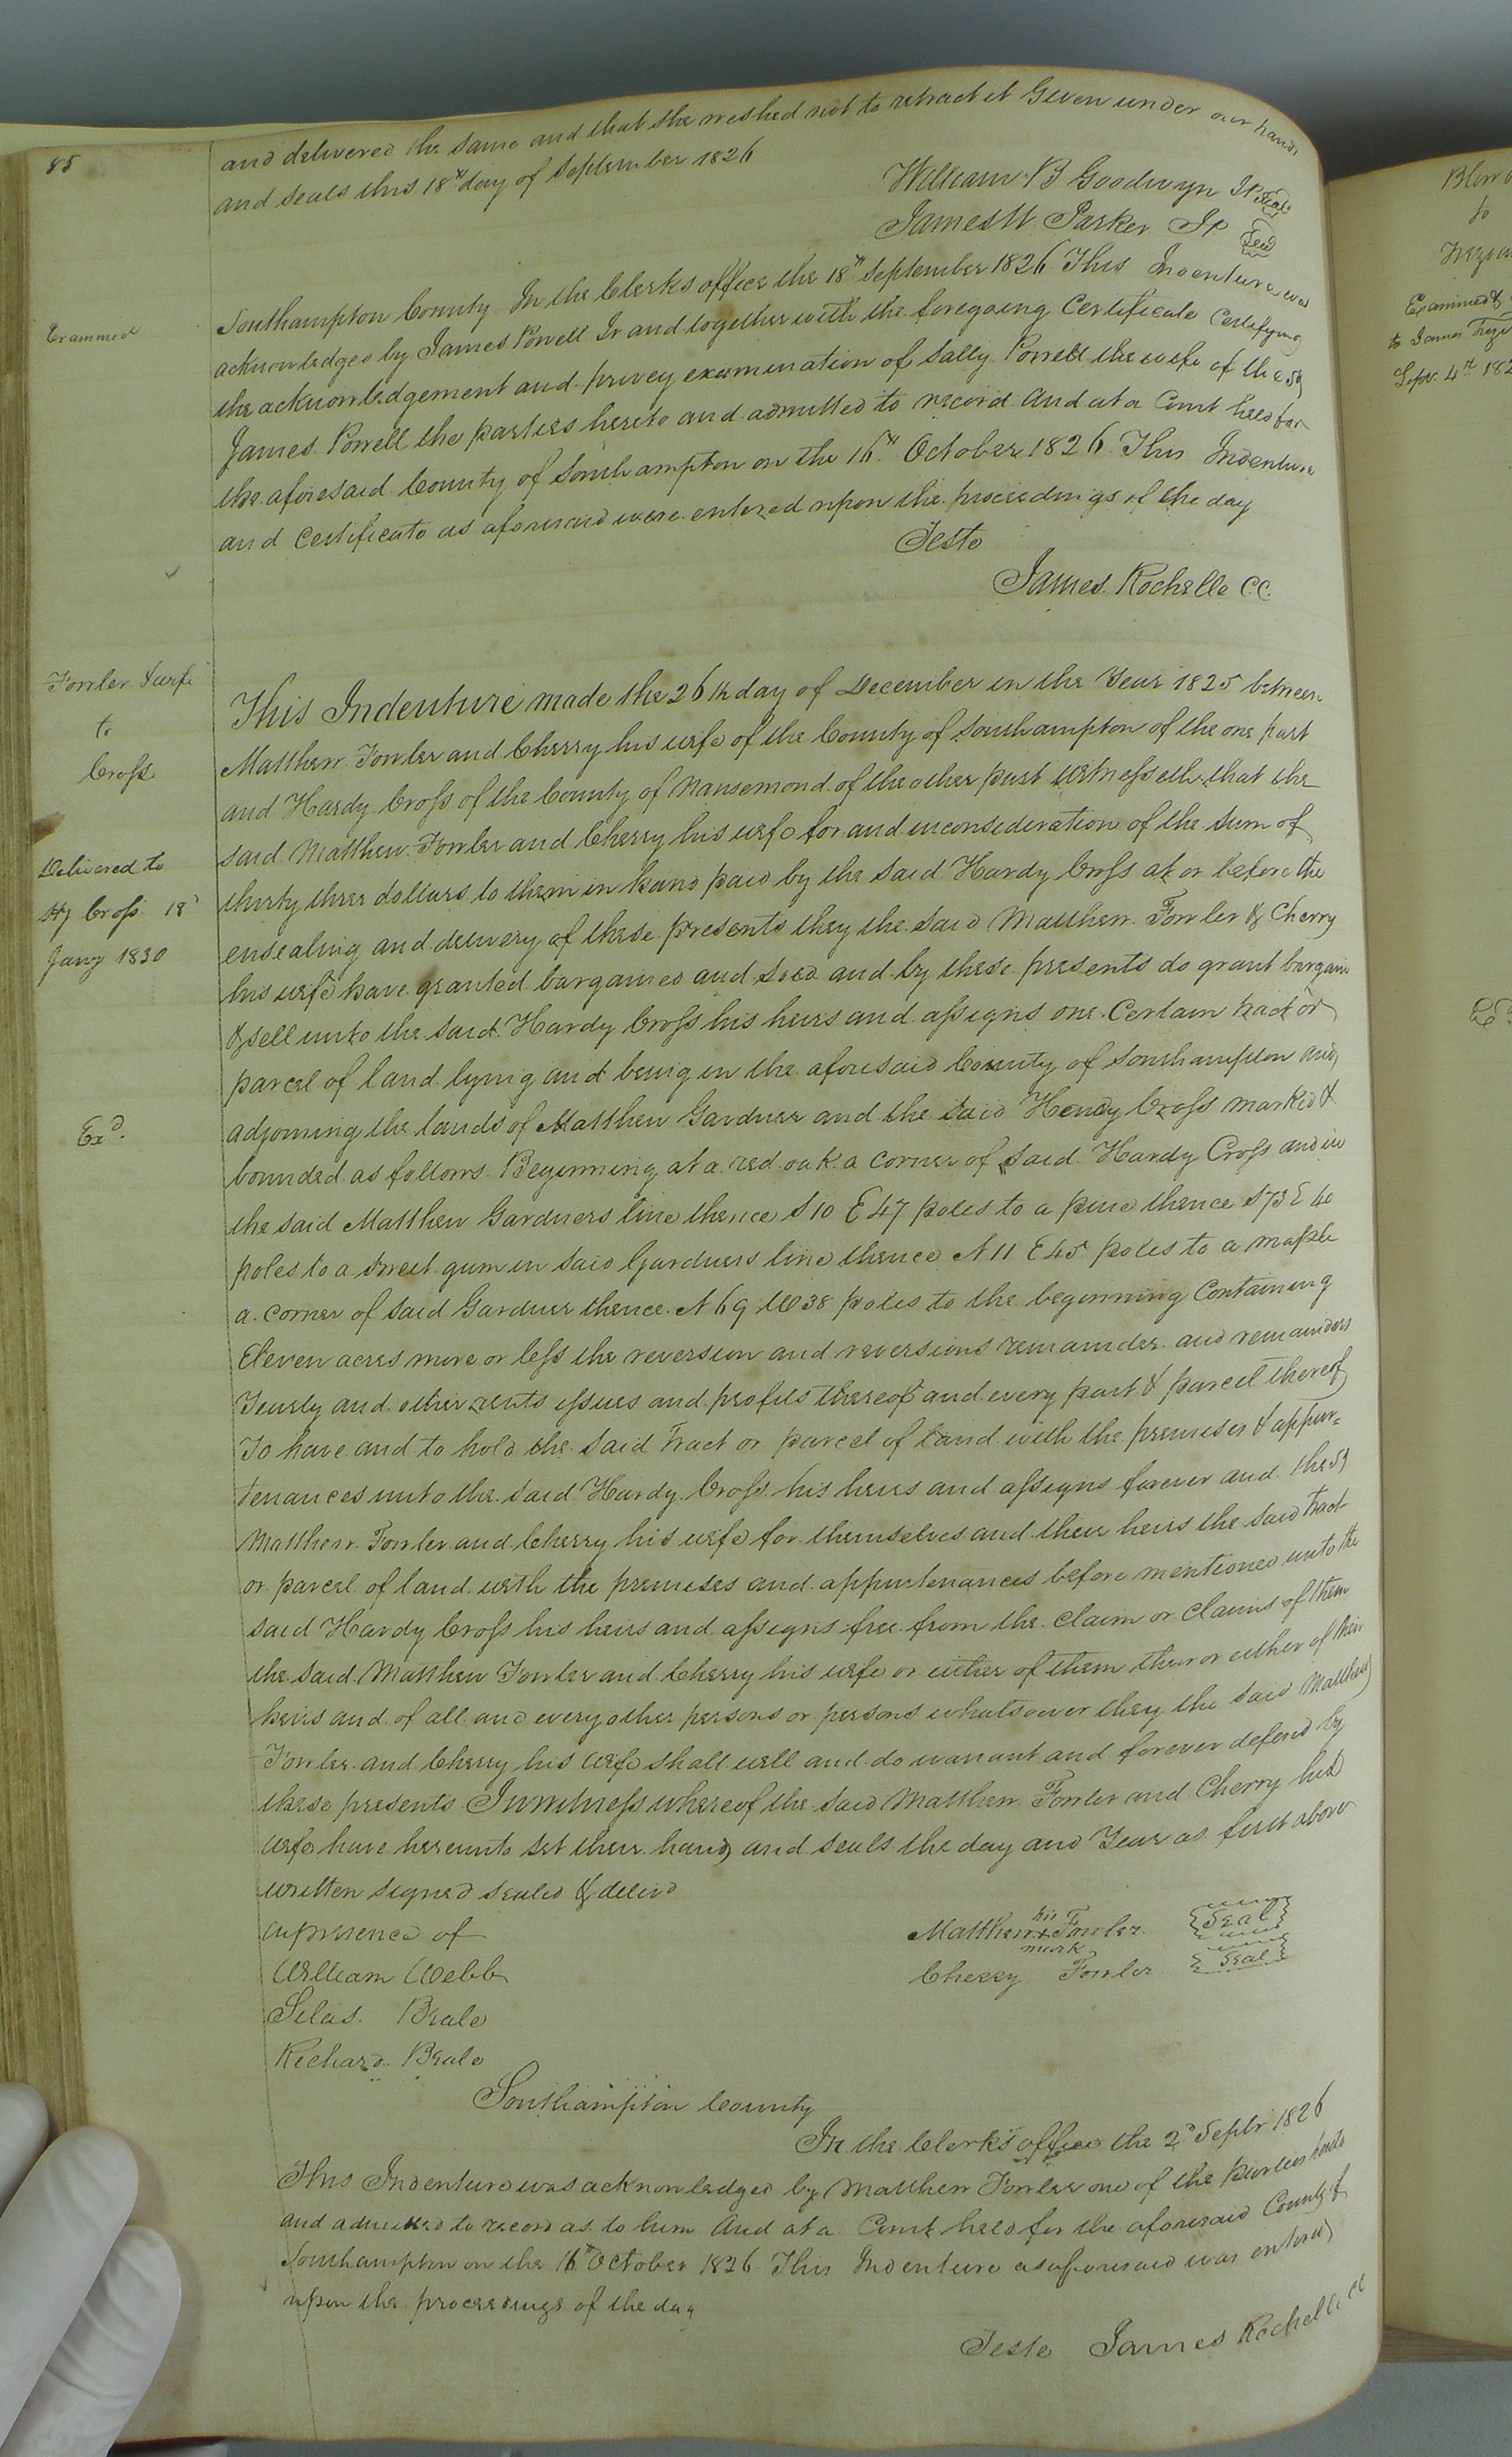 85
and delivered the same and that she wished not to retract it Given under our hands
and seals this 18th day of September 1826
William B Goodwyn JP Seal
James W Parker JP Seal
Examined
Southampton County In the Clerks office the 18th September 1826 This Indenture was
acknowledged by James Powell Jr and together with the foregoing Certificate Certifying
the acknowledgement and privey examination of Sally Powell the wife of the sd
James Powell the parties hereto and admitted to record And at a Court held for
the aforesaid County of Southampton on the 16th October 1826 This Indenture
and Certificate as aforesaid were entered upon the proceedings of the day
Teste
James Rochelle C.C.
Fowler & wife
to
Cross
This Indenture made the 26th day of December in the Year 1825 between
Matthew Fowler and Cherry his wife of the County of Southampton of the one part
and Hardy Cross of the County of Nansemond of the other part witnesseth that the
said Matthew Fowler and Cherry his wife for and inconsideration of the sum of
Delivered to
Hy Cross 18d
Jany 1830
thirty three dollars to them in hand paid by the said Hardy Cross at or before the
ensealing and delivery of these presents they the said Matthew Fowler & Cherry
his wife have granted bargained and sold and by these presents do grant bargain
& sell unto the said Hardy Cross his heirs and assigns one Certain tract or
parcel of land lying and being in the aforesaid County of Southampton and
Exd.
adjoining the lands of Matthew Gardner and the said Hardy Cross marked &
bounded as follows Beginning at a red oak a corner of said Hardy Cross and in
the said Matthew Gardners line thence S 10 E 47 poles to a pine thence S 73 E 40
poles to a sweet gum in said Gardners line thence N 11 E 45 poles to a maple
a corner of said Gardner thence N 69 W 38 poles to the beginning Containing
Eleven acres more or less the reversion and reversions remainder and remainders
Yearly and other rents issues and profits thereof and every part & parcel thereof
To have and to hold the said Tract or parcel of land with the premises & appur=
tenances unto the said Hardy Cross his heirs and assigns forever and the sd
Matthew Fowler and Cherry his wife for themselves and their heirs the said tract
or parcel of land with the premises and appurtenances before mentioned unto the
said Hardy Cross his heirs and assigns free from the claim or claims of them
the said Matthew Fowler and Cherry his wife or either of them their or either of their
heirs and of all and every other persons or persons whatsoever they the said Matthew
Fowler and Cherry his wife shall will and do warrant and forever defend by
these presents In witness whereof the said Matthew Fowler and Cherry his
wife have hereunto set their hand and seals the day and Year as first above
written signed sealed & delivd
in presence of
William Webb
Silas Beale
Richard Beale
his
Matthew + Fowler Seal
mark
Cherry Fowler Seal
Southampton County
In the Clerk's office the 2d Septr 1826
This Indenture was acknowledged by Matthew Fowler one of the parties hereto
and admitted to record as to him And at a Court held for the aforesaid County of
Southampton on the 16th October 1826 This Indenture as aforesaid was entered
upon the proceedings of the day
Teste James Rochelle CC
to
Examined &
to James
Septr. 4th 182